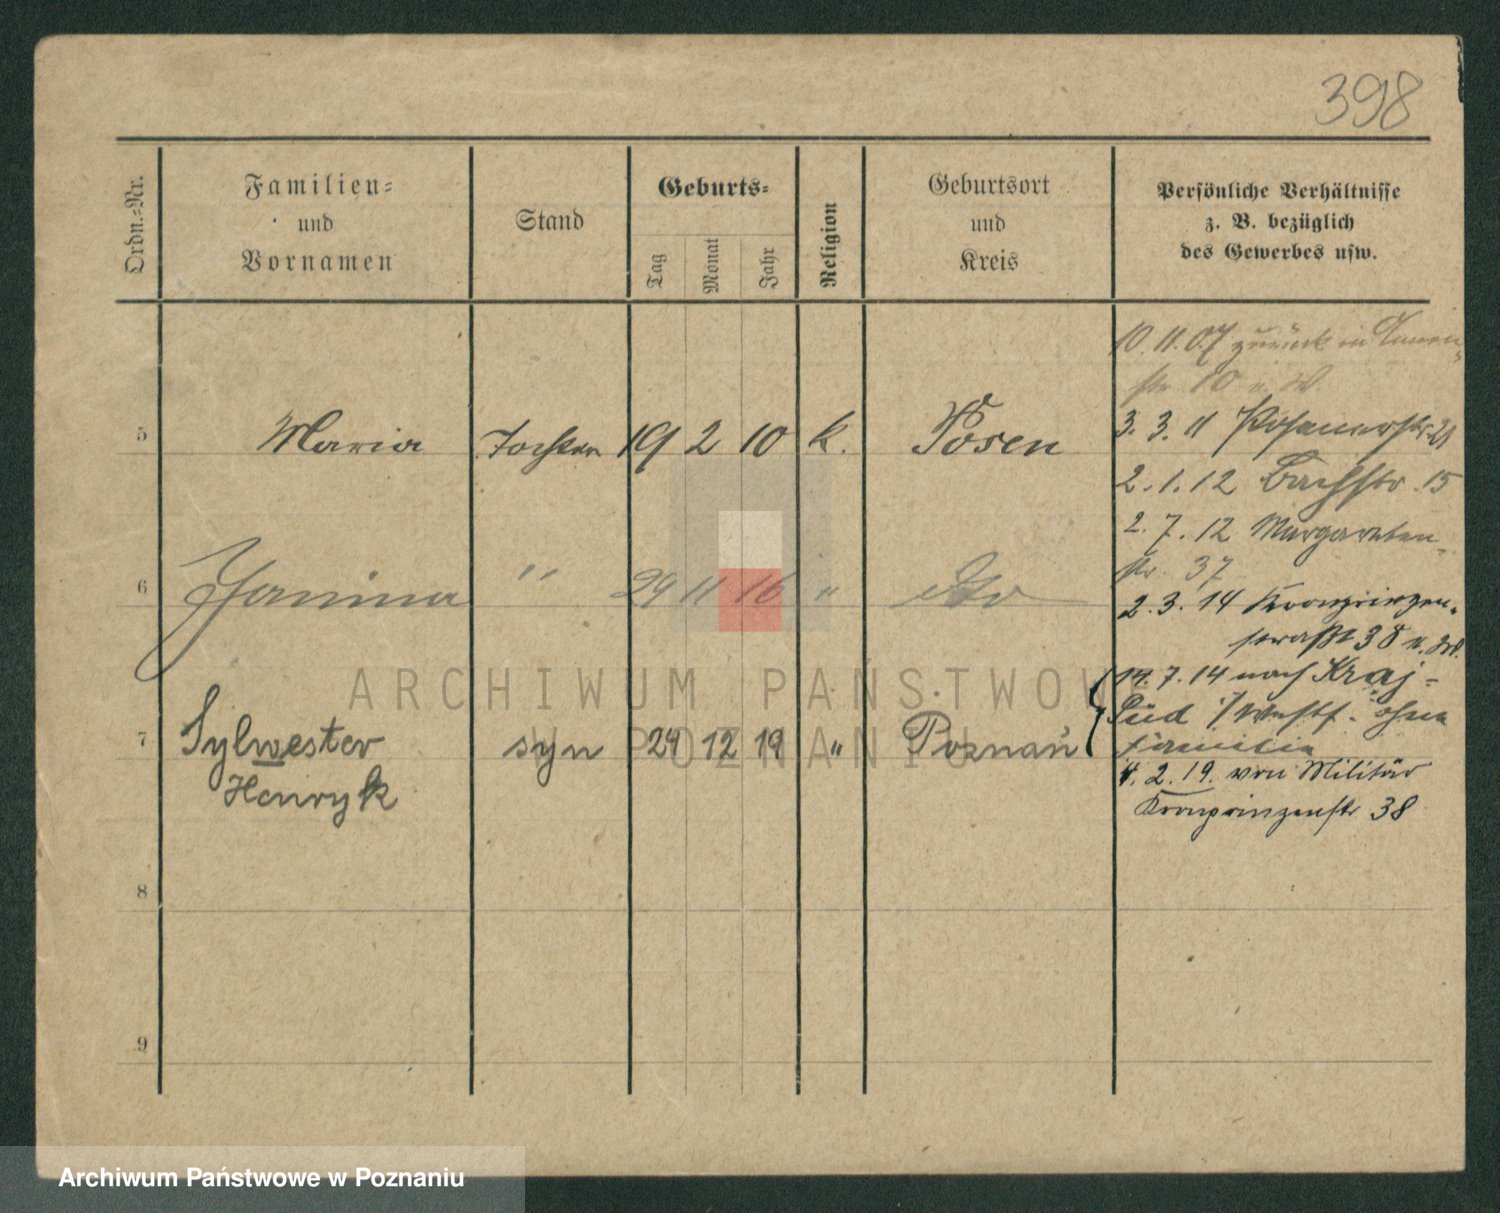 398
Ordn.=Nr.
Familien=
und
Vornamen
Stand
Geburts=
Tag
Monat
Jahr
Religion
Geburtsort
und
Kreis
Persönliche Verhältnisse
z. B. bezüglich
des Gewerbes usw.
10.11.07 zurück in
str. 10 v. W.
5 Maria Tochter 19 2 10 k. Posen
3. 3. 11 Posenerstr. 21
2. 1. 12 Bachstr. 15
2. 7. 12 Margareten-
str. 37
6 Janina " 29 11 16 " dto
2. 3. 14 Kronprinzen-
straße 38
14. 7. 14 nach Kraj-
Süd i/Westf. ohne
Familie
7 Sylwester syn 24 12 19 " Poznań
Henryk
4. 2. 19. von Militär
Kronprinzenstr 38
8
9
ARCHIWUM PAŃSTWOW
W POZNANIU
Archiwum Państwowe w Poznaniu